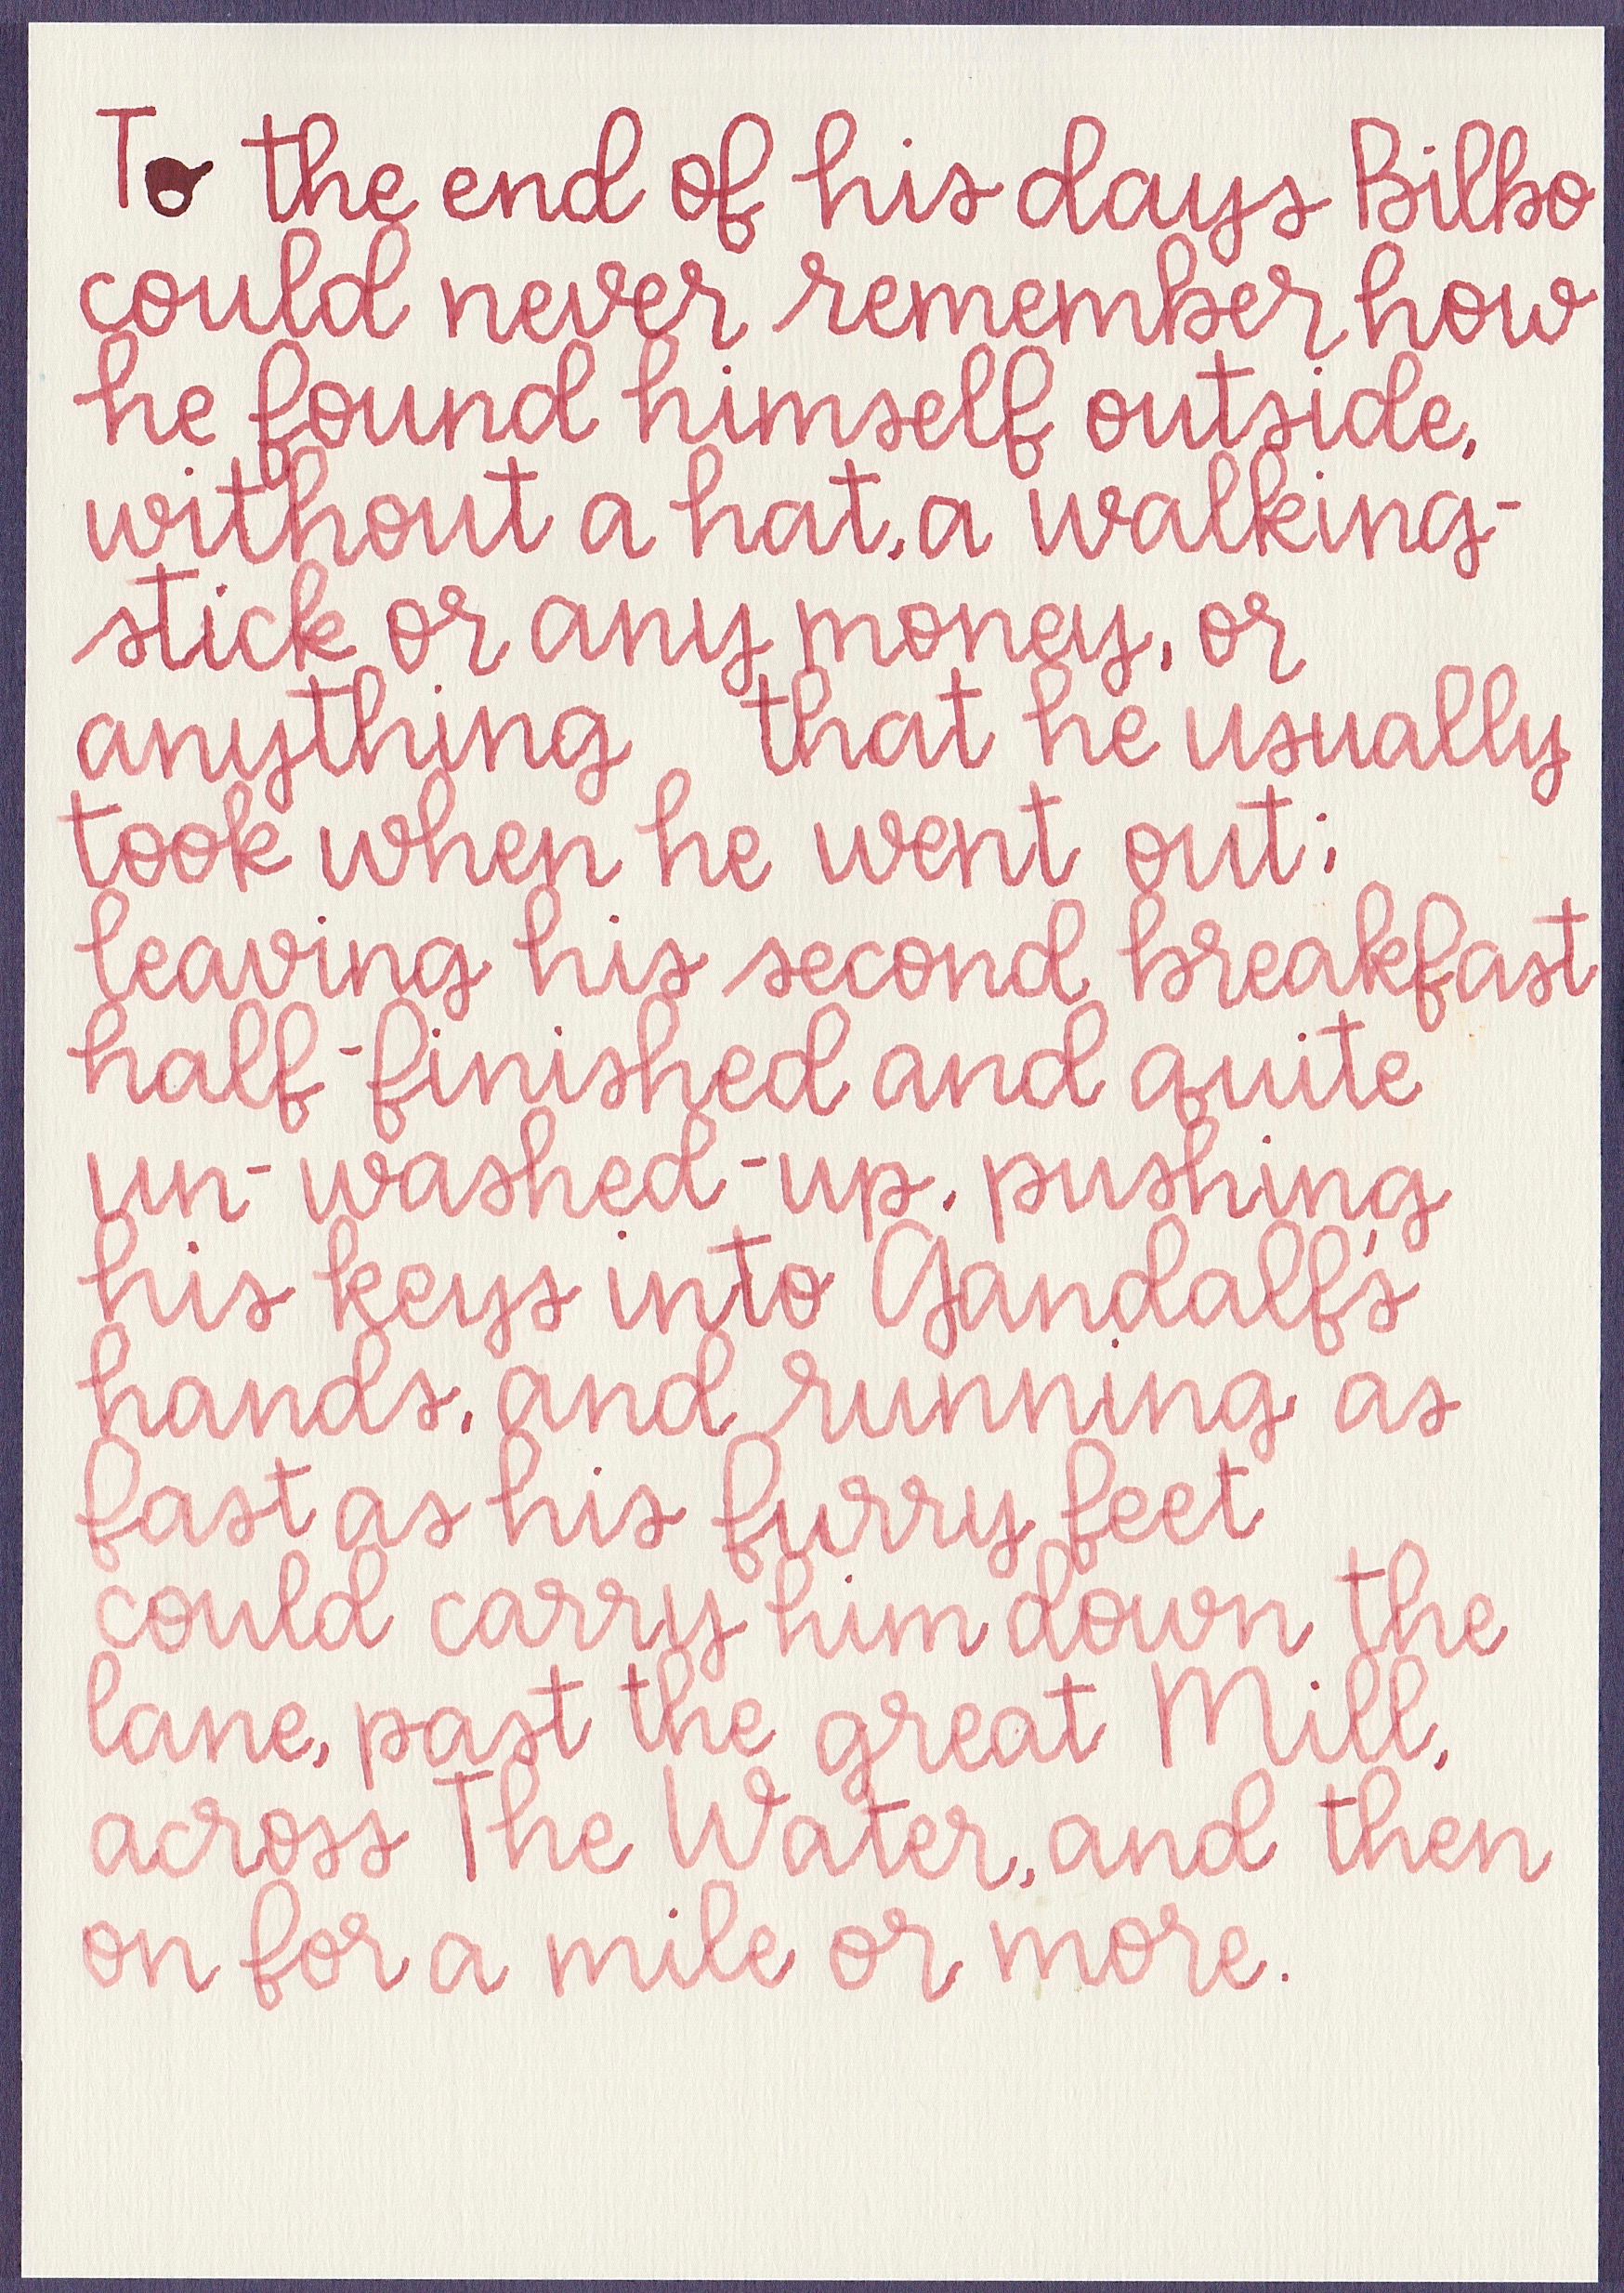 To the end of his days Bilbo
could never remember how
he found himself outside,
without a hat, a walking-
stick or any money, or
anything that he usually
took when he went out;
leaving his second breakfast
half-finished and quite
un-washed-up, pushing
his keys into Gandalf's
hands, and running as
fast as his furry feet
could carry him down the
lane, past the great Mill,
across The Water, and then
on for a mile or more.